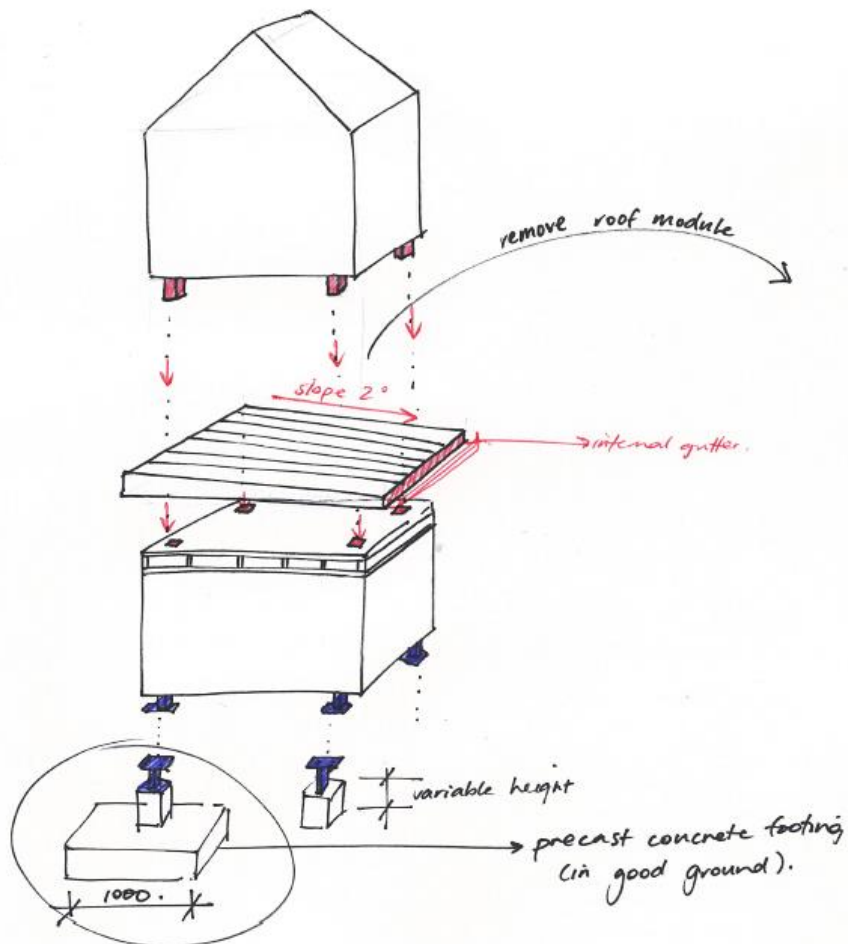 remove roof module
slope 2°
internal gutter.
variable height
precast concrete footing
(in good ground).
1000.